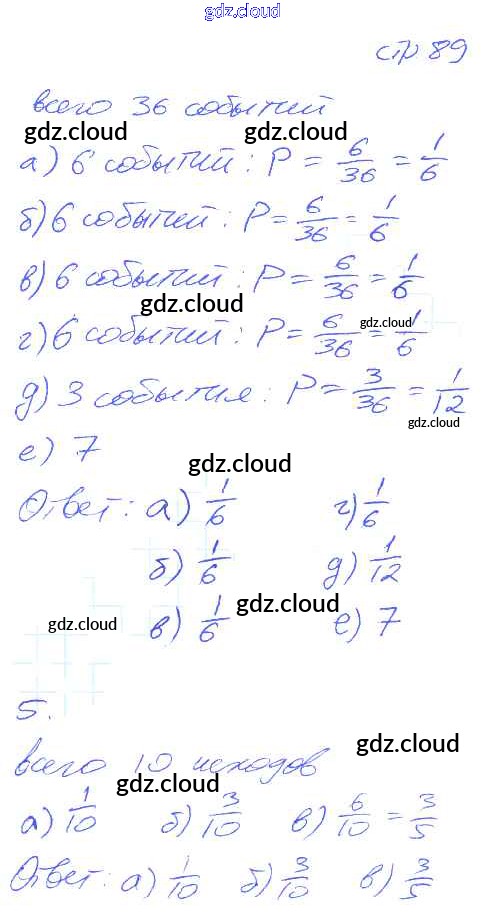 gdz.cloud
стр 89
всего 36 событий
gdz.cloud gdz.cloud
а) 6 событий : P = 6/36 = 1/6
б) 6 событий : P = 6/36 = 1/6
в) 6 событий : P = 6/36 = 1/6
gdz.cloud gdz.cloud
г) 6 событий : P = 6/36 = 1/6
д) 3 события : P = 3/36 = 1/12
gdz.cloud
е) 7
gdz.cloud
Ответ: а) 1/6 г) 1/6
б) 1/6 д) 1/12
gdz.cloud
в) 1/6 е) 7
gdz.cloud
5.
gdz.cloud
всего 10 исходов
gdz.cloud
а) 1/10 б) 3/10 в) 6/10 = 3/5
Ответ: а) 1/10 б) 3/10 в) 3/5